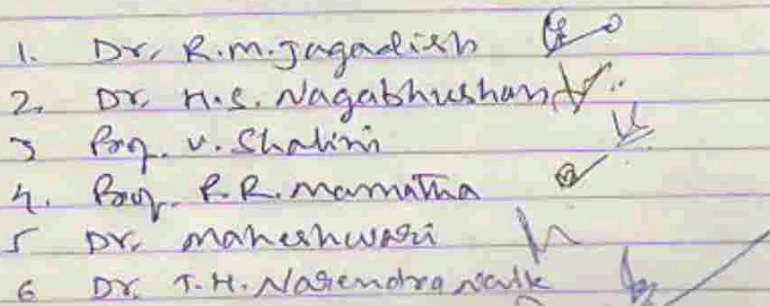 1. Dr. R.M. Jagadish
2. Dr. H.S. Nagabhushan
3 Prof. V. Shalini
4. Prof. P.R. Mamatha
5 Dr. Maheshwari
6 Dr. T.H. Narendra Naik